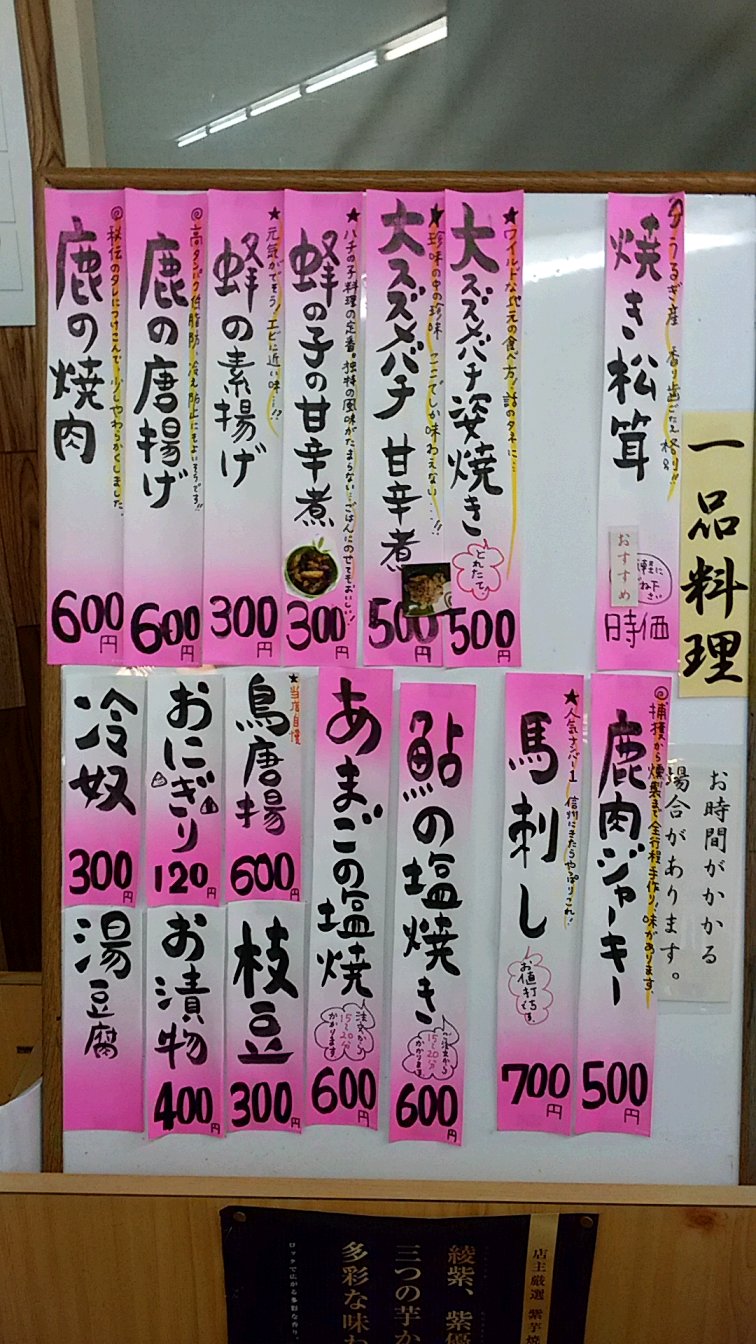 一品料理
うるぎ産 香り歯ごたえ格別!!
焼き松茸
おすすめ
時価
★ワイルドな地元の食べ方!話のタネに…
大スズメバチ姿焼き
とれたて!
500円
★珍味の中の珍味 ここでしか味わえない…!!
大スズメバチ 甘辛煮
500円
★ハチの子料理の定番。独特の風味がたまらない…ごはんにのせてもおいしい!!
蜂の子の甘辛煮
300円
★元気がでそう!エビに近い味…!?
蜂の素揚げ
300円
◎高タンパク低脂肪、冷え防止にもよいそうです!!
鹿の唐揚げ
600円
◎秘伝のタレにつけこんで、少しやわらかくしました。
鹿の焼肉
600円
お時間がかかる
場合があります。
◎捕獲から燻製まで全行程手作り!味があります。
鹿肉ジャーキー
500円
★人気ナンバー1 信州にきたらやっぱりこれ!
馬刺し
お値打ちです。
700円
鮎の塩焼き
ご注文から
15~20分
かかります。
600円
あまごの塩焼
注文から
15~20分
かかります
600円
★当店自慢
鳥唐揚
600円
おにぎり
120円
冷奴
300円
枝豆
300円
お漬物
400円
湯豆腐
店主厳選 紫芋焼
綾紫、紫優
三つの芋か
多彩な味わ